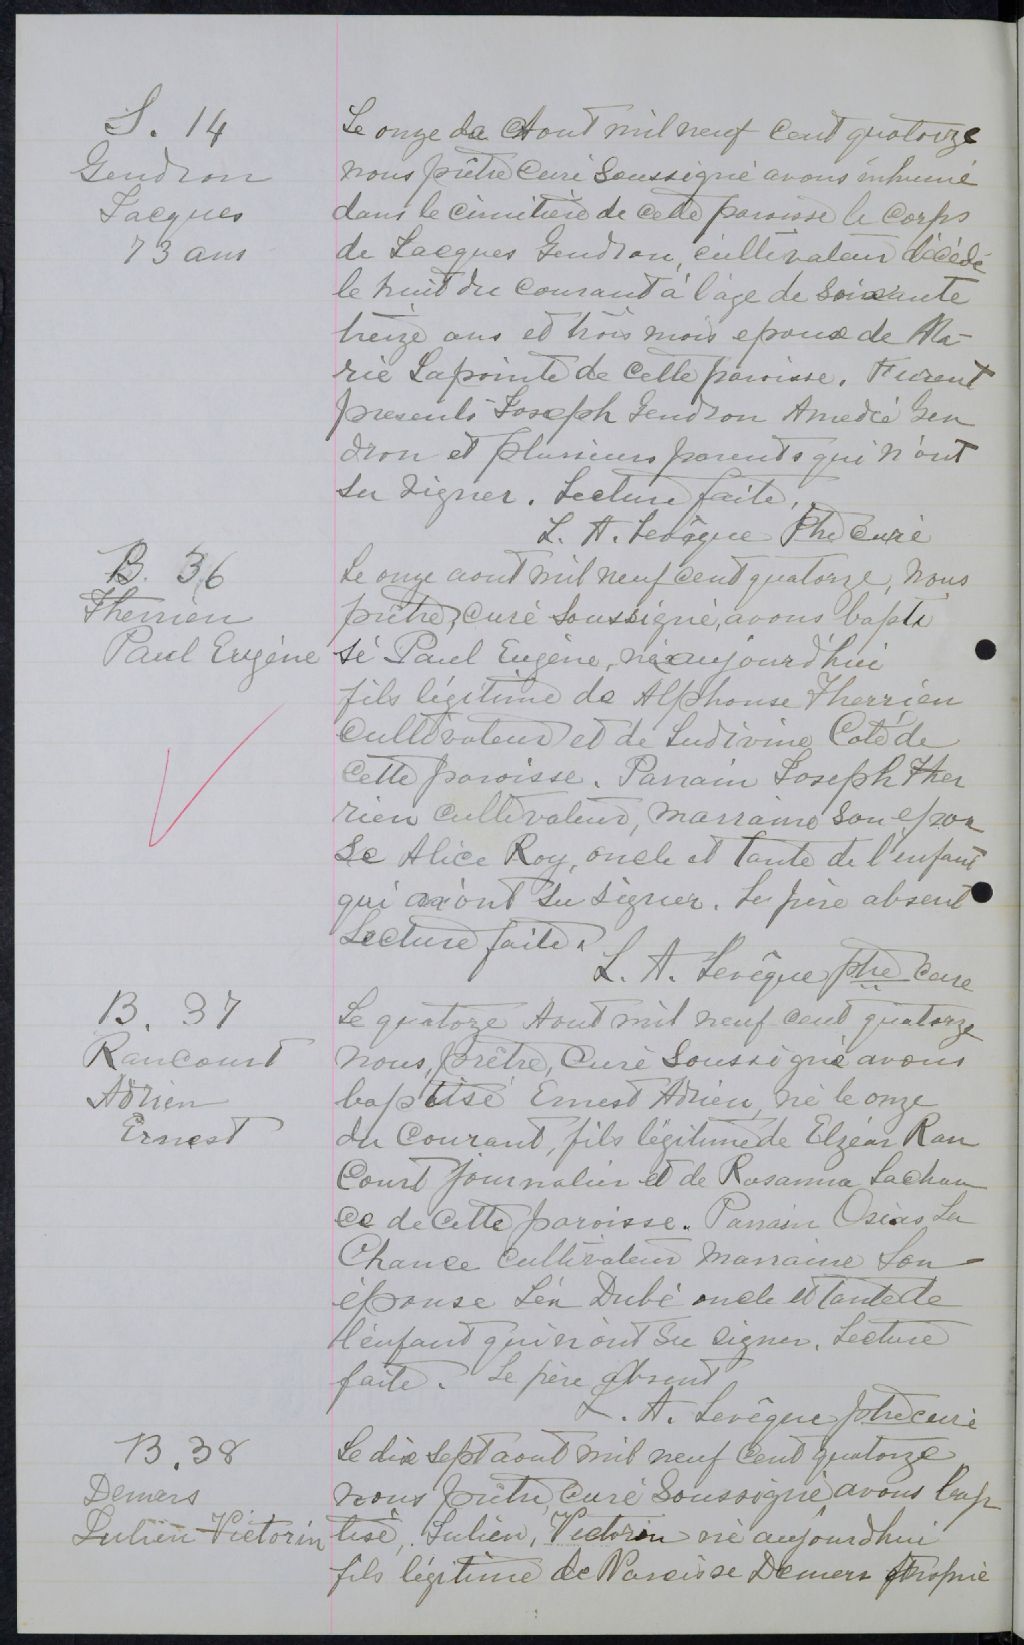 S. 14
Gendron
Jacques
73 ans
Le onze de Aout mil neuf cent quatorze
nous prêtre curé soussigné avons inhumé
dans le cimitière de cette paroisse le corps
de Jacques Gendron, cultivateur décédé
le huit du courant à l'âge de soixante
treize ans et trois mois epoux de Ma-
rie Lapointe de cette paroisse. Furent
presents Joseph Gendron Amedé Gen
dron et plusieurs parents qui n'ont
su signer. Lecture faite,
L. A. Levêque Ptre curé
B. 36
Therrien
Paul Eugène
Le onze aout mil neuf cent quatorze, nous
prêtre, curé soussigné, avons bapti
sé Paul Eugène, né aujourd'hui
fils légitime de Alphonse Therrien
cultivateur et de Ludivine Coté de
cette paroisse. Parrain Joseph Ther
rien cultivateur, marraine son epou
se Alice Roy, oncle et tante de l'enfant
qui n'ont su signer. Le père absent
Lecture faite.
L. A. Levêque ptre curé
B. 37
Rancourt
Adrien
Ernest
Le quatorze Aout mil neuf cent quatorze
nous, prêtre, curé soussigné avons
baptisé Ernest Adrien, né le onze
du courant, fils légitime de Elzéar Ran
court journalier et de Rosanna Lachan
ce de cette paroisse. Parrain Osias La
Chance cultivateur marraine son
épouse Léa Dubé oncle et tante de
l'enfant qui n'ont su signer. Lecture
faite. Le père absent
L. A. Levêque ptre curé
B. 38
Demers
Julien Victorin
Le dix sept aout mil neuf cent quatorze
nous prêtre, curé soussigné avons bap
tisé, Julien, Victorin né aujourdhui
fils légitime de Narcisse Demers proprié